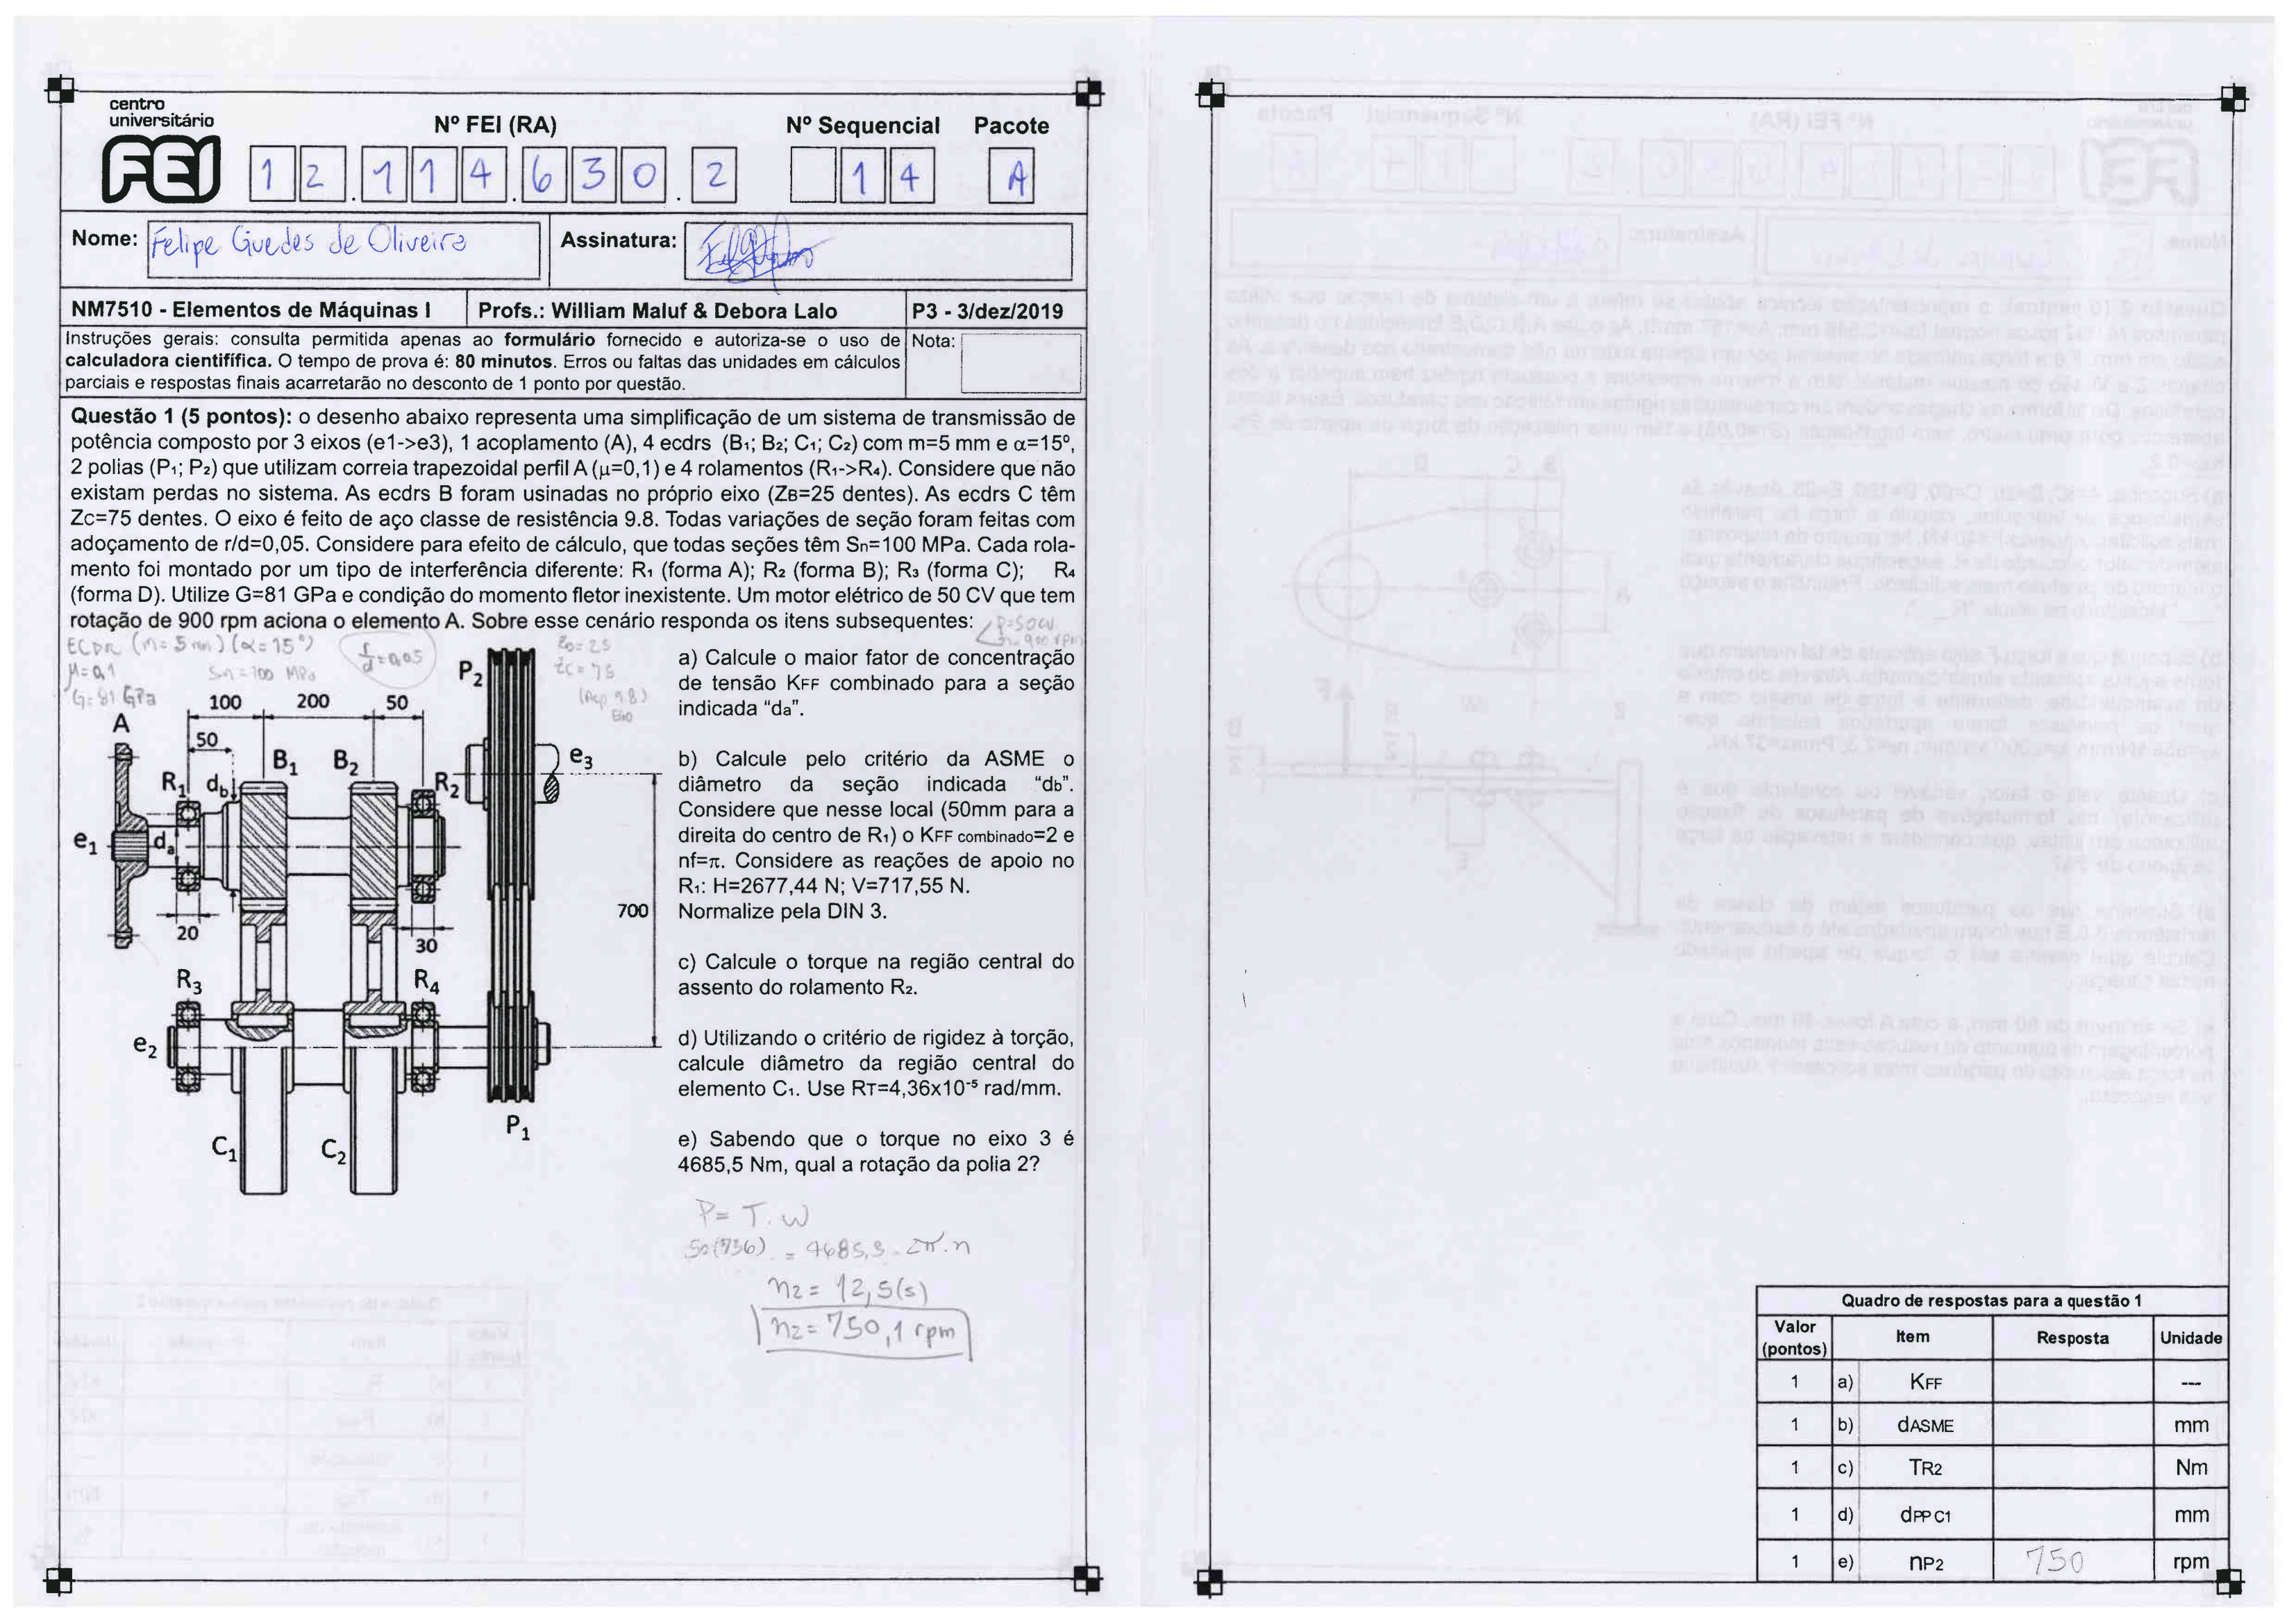 centro
universitário
FEI
Nº FEI (RA)
Nº Sequencial
Pacote
12.114.630.2
14
A
Nome: Felipe Guedes de Oliveira
Assinatura:
NM7510 - Elementos de Máquinas I
Profs.: William Maluf & Debora Lalo
P3 - 3/dez/2019
Instruções gerais: consulta permitida apenas ao formulário fornecido e autoriza-se o uso de
calculadora cientifífica. O tempo de prova é: 80 minutos. Erros ou faltas das unidades em cálculos
parciais e respostas finais acarretarão no desconto de 1 ponto por questão.
Nota:
Questão 1 (5 pontos): o desenho abaixo representa uma simplificação de um sistema de transmissão de
potência composto por 3 eixos (e1->e3), 1 acoplamento (A), 4 ecdrs (B1; B2; C1; C2) com m=5 mm e α=15º,
2 polias (P1; P2) que utilizam correia trapezoidal perfil A (µ=0,1) e 4 rolamentos (R1->R4). Considere que não
existam perdas no sistema. As ecdrs B foram usinadas no próprio eixo (ZB=25 dentes). As ecdrs C têm
Zc=75 dentes. O eixo é feito de aço classe de resistência 9.8. Todas variações de seção foram feitas com
adoçamento de r/d=0,05. Considere para efeito de cálculo, que todas seções têm Sn=100 MPa. Cada rola-
mento foi montado por um tipo de interferência diferente: R1 (forma A); R2 (forma B); R3 (forma C); R4
(forma D). Utilize G=81 GPa e condição do momento fletor inexistente. Um motor elétrico de 50 CV que tem
rotação de 900 rpm aciona o elemento A. Sobre esse cenário responda os itens subsequentes:
P=50CV
n=900 rpm
ECDR (m=5 mm) (α=15°)
r/d=0,05
ZB=25
µ=0,1
Sn=100 MPa
ZC=75
G=81 GPa
(Aço 9.8)
Eixo
A
100
200
50
P2
50
B1
B2
e3
R1
db
R2
e1
da
700
20
30
R3
R4
e2
C1
C2
P1
a) Calcule o maior fator de concentração
de tensão KFF combinado para a seção
indicada “da”.
b) Calcule pelo critério da ASME o
diâmetro da seção indicada “db”.
Considere que nesse local (50mm para a
direita do centro de R1) o KFF combinado=2 e
nf=π. Considere as reações de apoio no
R1: H=2677,44 N; V=717,55 N.
Normalize pela DIN 3.
c) Calcule o torque na região central do
assento do rolamento R2.
d) Utilizando o critério de rigidez à torção,
calcule diâmetro da região central do
elemento C1. Use RT=4,36x10-5 rad/mm.
e) Sabendo que o torque no eixo 3 é
4685,5 Nm, qual a rotação da polia 2?
P= T. W
50(736) = 4685,5 . 2π.n
n2= 12,5(s)
n2= 750,1 rpm
Quadro de respostas para a questão 1
Valor
(pontos)
Item
Resposta
Unidade
1 a) KFF ---
1 b) dASME mm
1 c) TR2 Nm
1 d) dPP C1 mm
1 e) nP2 750 rpm